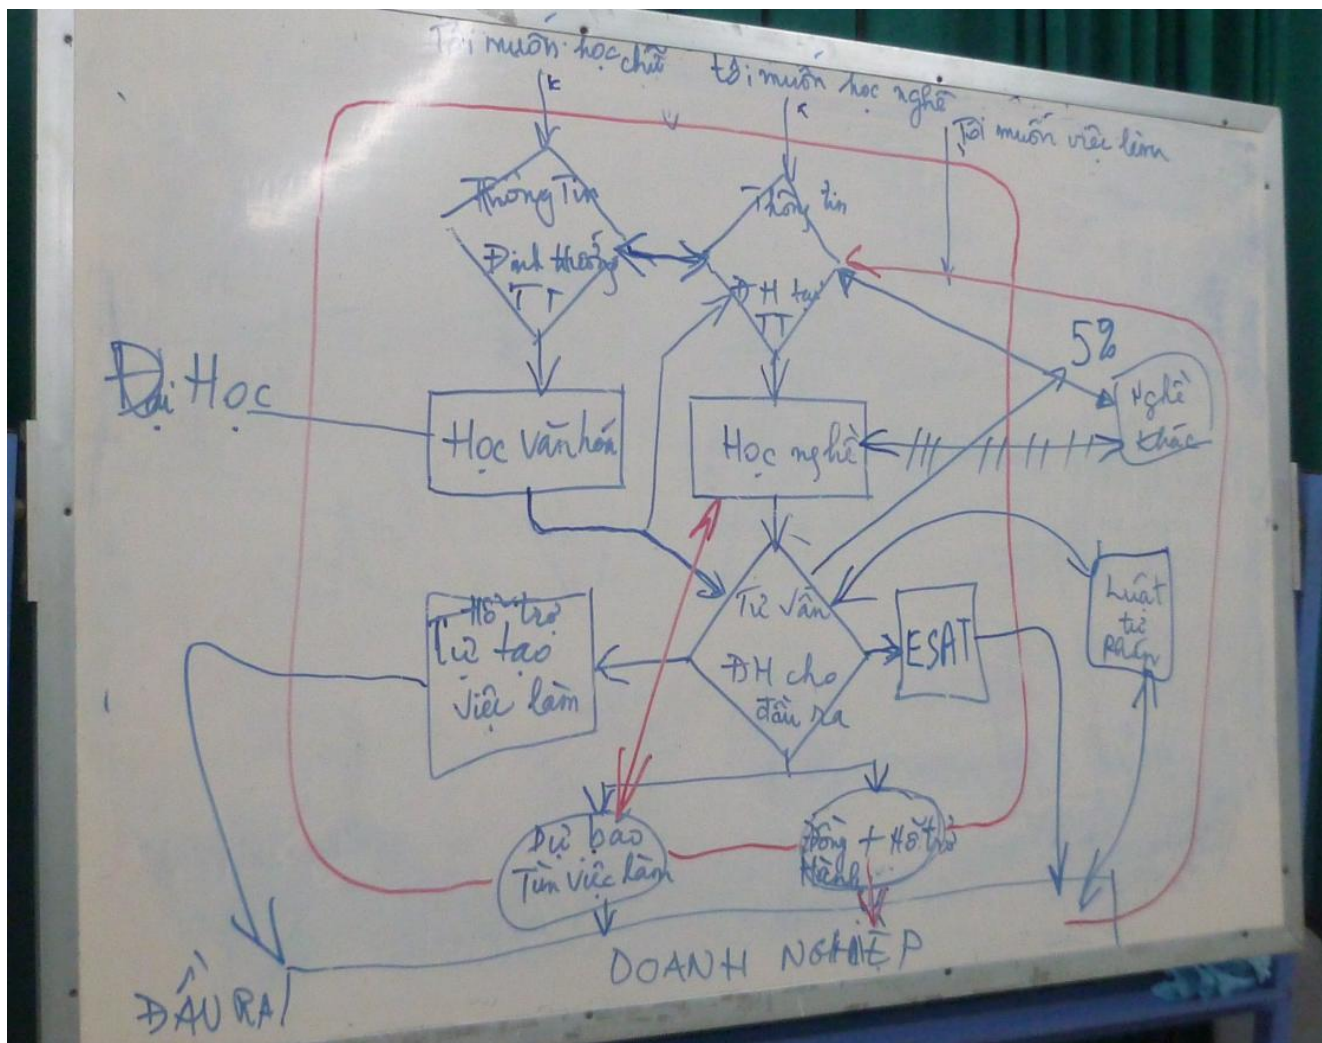 Tôi muốn học chữ
tôi muốn học nghề
Tôi muốn việc làm
Thông Tin
Định Hướng
TT
Thông tin
ĐH tại
TT
5%
Đại Học
Học văn hóa
Học nghề
Nghề
khác
Hỗ trợ
Tự tạo
việc làm
Tư vấn
ĐH cho
đầu ra
ESAT
Luật
tư
Dự báo
Tìm việc làm
Đồng + Hỗ trợ
Hành
DOANH NGHIỆP
ĐẦU RA